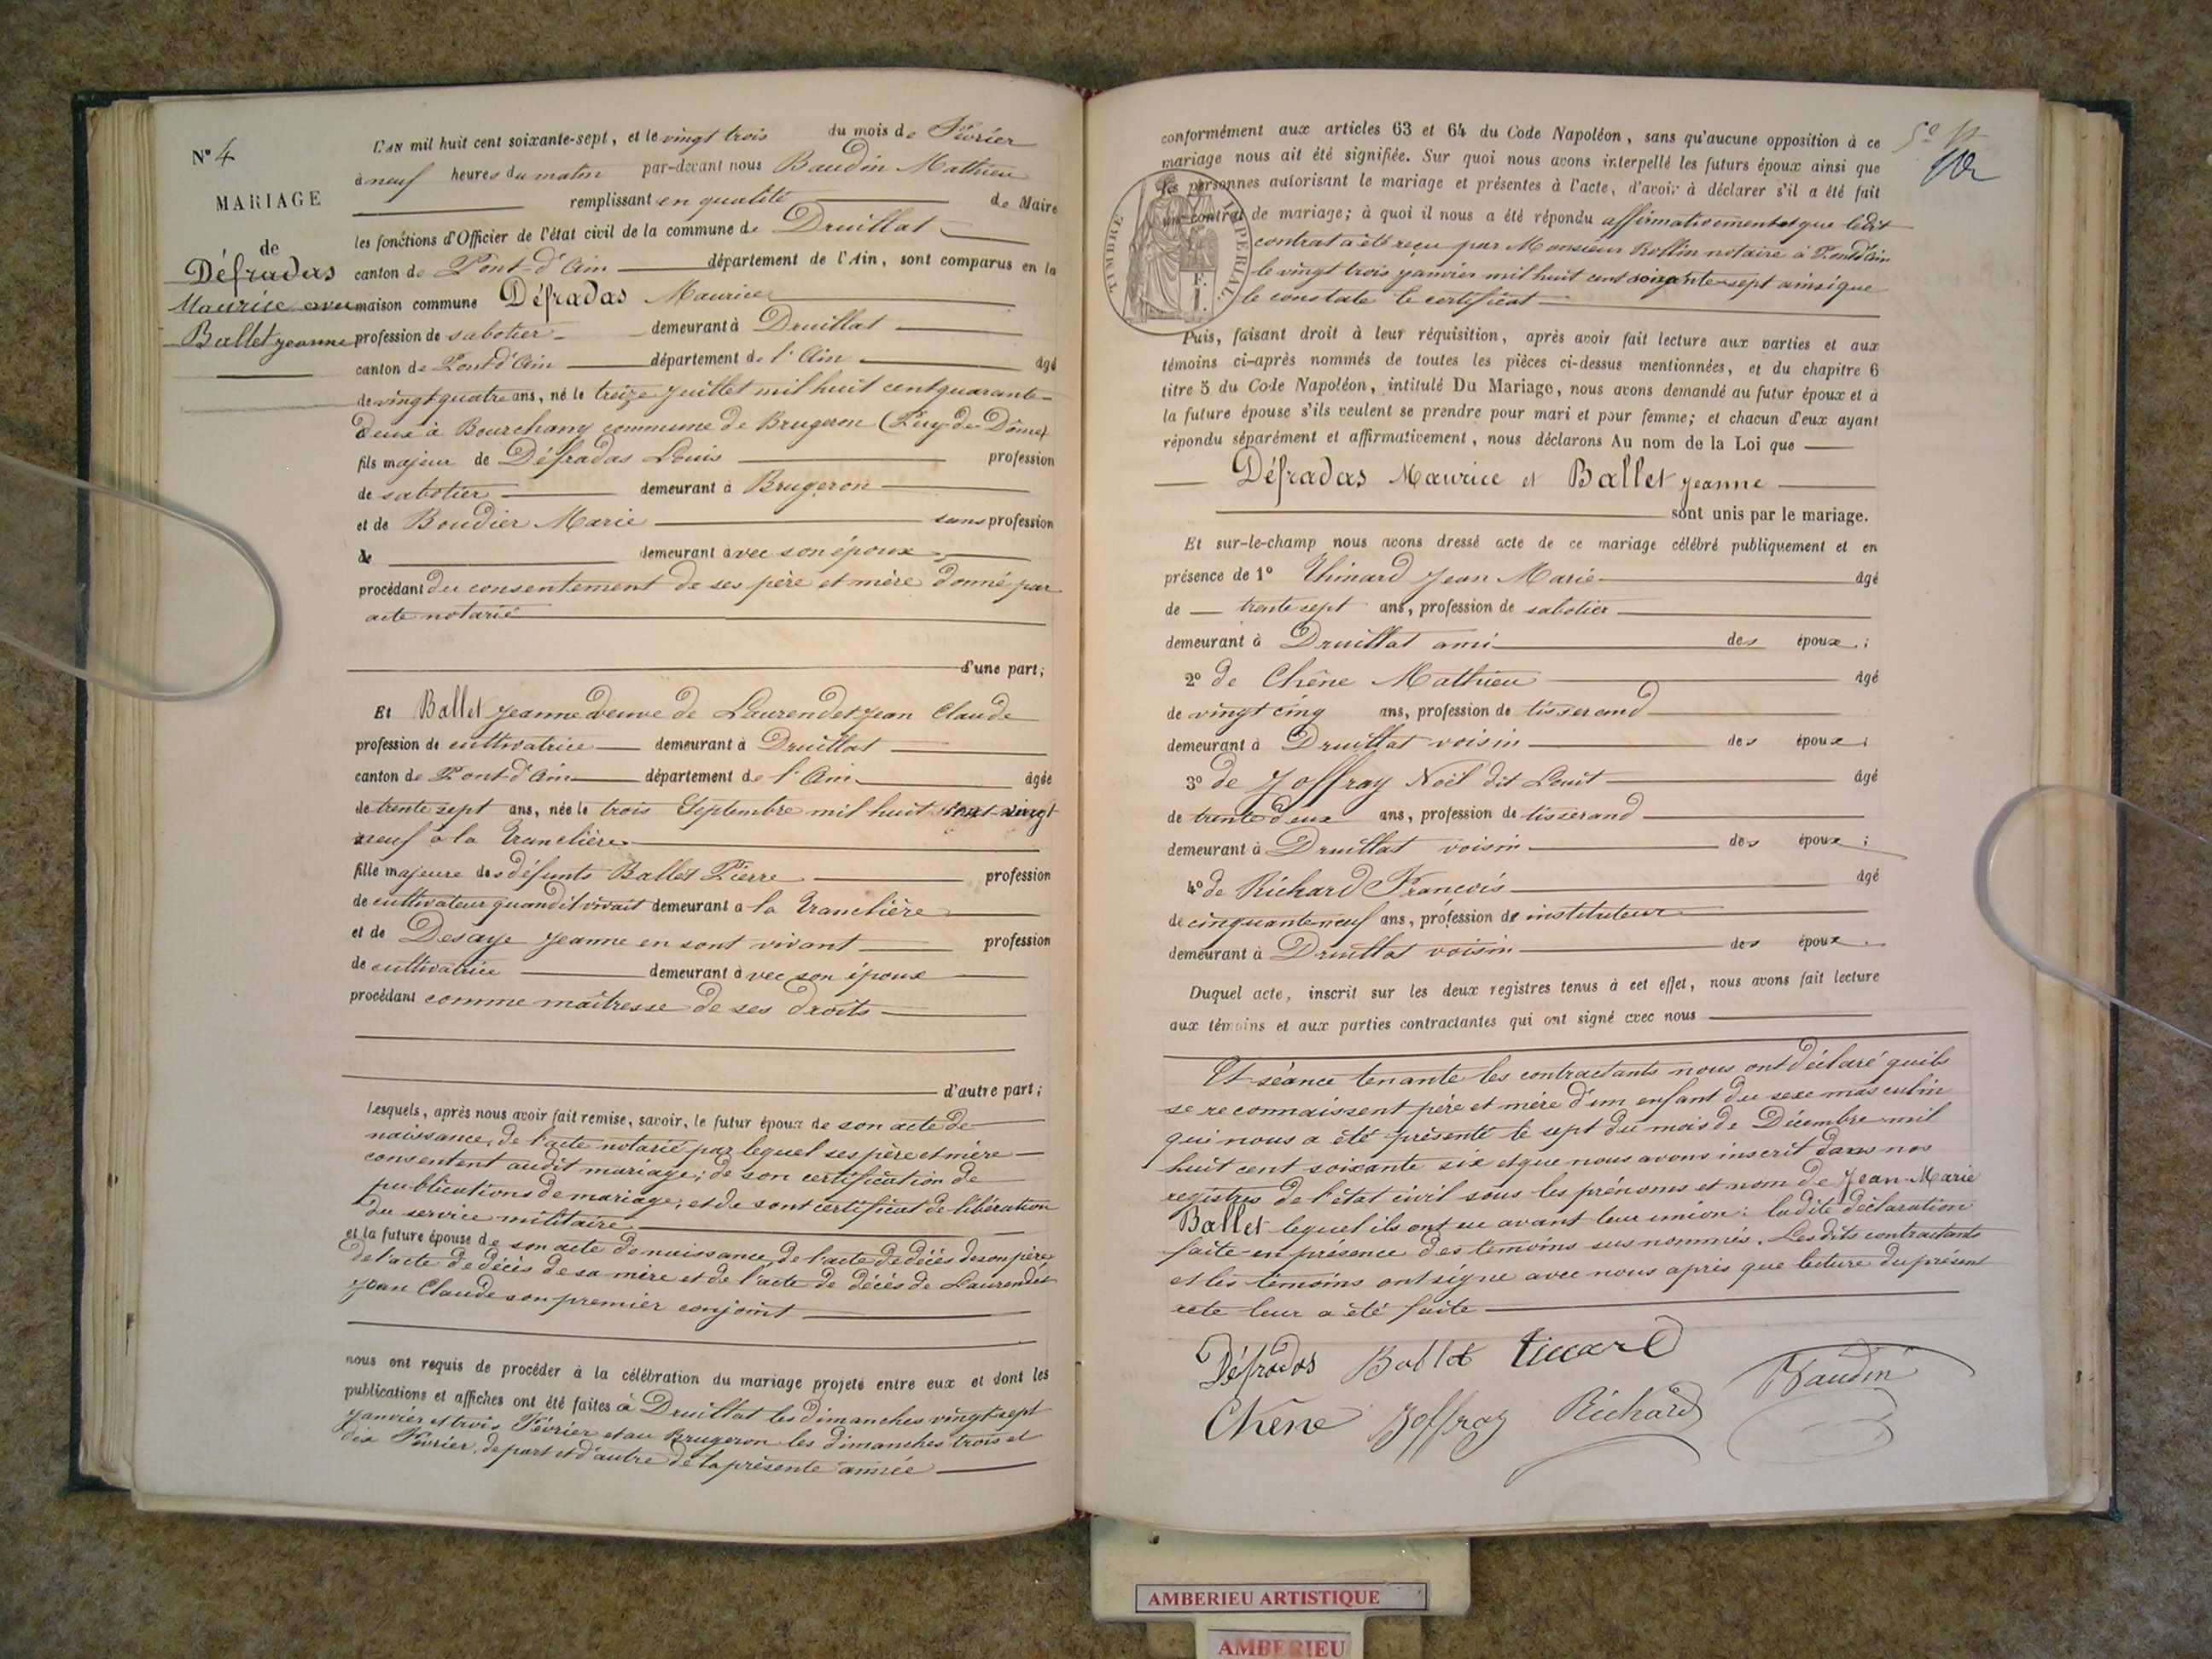 N° 4
MARIAGE
de
Défradas
Maurice avec
Ballet Jeanne
L'AN mil huit cent soixante-sept, et le vingt trois du mois de Février
à neuf heures du matin par-devant nous Baudin Mathieu
remplissant en qualité de Maire
les fonctions d'Officier de l'état civil de la commune de Druillat
canton de Pont-d'Ain département de l'Ain, sont comparus en la
maison commune Défradas Maurice
profession de sabotier demeurant à Druillat
canton de Pont-d'Ain département de l'Ain âgé
de vingt quatre ans, né le treize Juillet mil huit cent quarante-
deux à Bourchany commune de Brugeron (Puy-de-Dôme)
fils majeur de Défradas Louis profession
de sabotier demeurant à Brugeron
et de Boudier Marie sans profession
de demeurant avec son époux
procédant du consentement de ses père et mère donné par
acte notarié
d'une part;
Et Ballet Jeanne veuve de Laurendet Jean Claude
profession de cultivatrice demeurant à Druillat
canton de Pont-d'Ain département de l'Ain âgée
de trente sept ans, née le trois Septembre mil huit cent vingt
neuf à la Tranclière
fille majeure des défunts Ballet Pierre profession
de cultivateur quand il vivait demeurant à la Tranclière
et de Desaye Jeanne en sont vivant profession
de cultivatrice demeurant avec son époux
procédant comme maîtresse de ses droits
d'autre part;
Lesquels, après nous avoir fait remise, savoir, le futur époux de son acte de
naissance, de l'acte notarié par lequel ses père et mère
consentent audit mariage; de son certification de
publications de mariage; et de sont certificat de libération
du service militaire
et la future épouse de son acte de naissance, de l'acte de décès de son père
de l'acte de décès de sa mère et de l'acte de décès de Laurendet
Jean Claude son premier conjoint
nous ont requis de procéder à la célébration du mariage projeté entre eux et dont les
publications et affiches ont été faites à Druillat les dimanches vingt sept
Janvier et trois Février et au Brugeron les dimanches trois et
dix Février, de part et d'autre de la présente année
conformément aux articles 63 et 64 du Code Napoléon, sans qu'aucune opposition à ce
mariage nous ait été signifiée. Sur quoi nous avons interpellé les futurs époux ainsi que
les personnes autorisant le mariage et présentes à l'acte, d'avoir à déclarer s'il a été fait
un contrat de mariage; à quoi il nous a été répondu affirmativement et que ledit
contrat a été reçu par Monsieur Rollin notaire à Pont-d'Ain
le vingt trois Janvier mil huit cent soixante-sept ainsi que
le constate le certificat
TIMBRE IMPERIAL
Puis, faisant droit à leur réquisition, après avoir fait lecture aux parties et aux
témoins ci-après nommés de toutes les pièces ci-dessus mentionnées, et du chapitre 6
titre 5 du Code Napoléon, intitulé Du Mariage, nous avons demandé au futur époux et à
la future épouse s'ils veulent se prendre pour mari et pour femme; et chacun d'eux ayant
répondu séparément et affirmativement, nous déclarons Au nom de la Loi que
Défradas Maurice et Ballet Jeanne
sont unis par le mariage.
Et sur-le-champ nous avons dressé acte de ce mariage célébré publiquement et en
présence de 1° Thinard Jean Marie âgé
de trente sept ans, profession de sabotier
demeurant à Druillat ami des époux;
2° de Chêne Mathieu âgé
de vingt cinq ans, profession de tisserand
demeurant à Druillat voisin des époux;
3° de Joffray Noël dit Louit âgé
de trente deux ans, profession de tisserand
demeurant à Druillat voisin des époux;
4° de Richard François âgé
de cinquante neuf ans, profession de instituteur
demeurant à Druillat voisin des époux.
Duquel acte, inscrit sur les deux registres tenus à cet effet, nous avons fait lecture
aux témoins et aux parties contractantes qui ont signé avec nous
Et séance tenante les contractants nous ont déclaré quils
se reconnaissent père et mère d'un enfant du sexe masculin
qui nous a été présenté le sept du mois de Décembre mil
huit cent soixante six et que nous avons inscrit dans nos
registres de l'état civil sous les prénoms et nom de Jean-Marie
Ballet lequel ils ont eu avant leur union: ladite déclaration
faite en présence des témoins sus nommés. Lesdits contractants
et les témoins ont signé avec nous après que lecture du présent
acte leur a été faite
Défradas Ballet Tinard
Baudin
Chêne Joffray Richard
AMBERIEU ARTISTIQUE
AMBERIEU